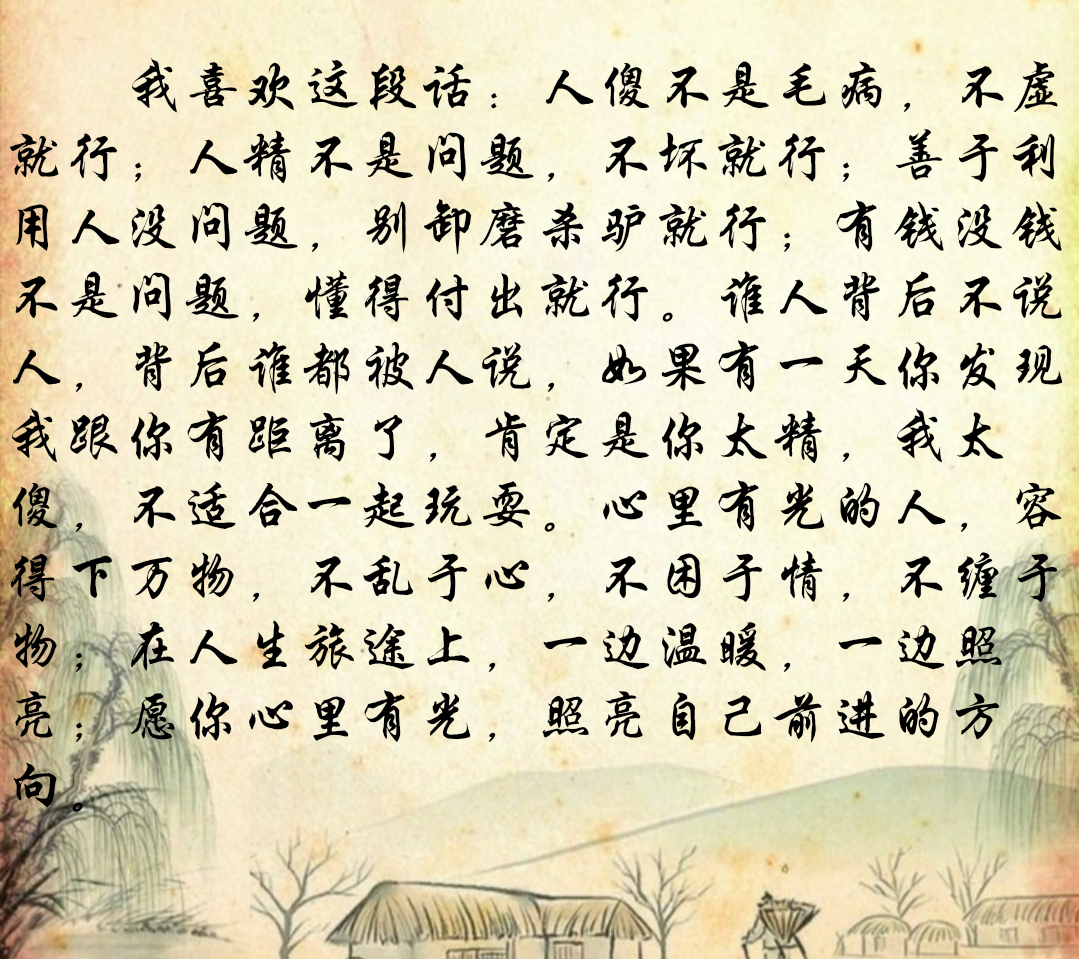 我喜欢这段话：人傻不是毛病，不虚
就行；人精不是问题，不坏就行；善于利
用人没问题，别卸磨杀驴就行；有钱没钱
不是问题，懂得付出就行。谁人背后不说
人，背后谁都被人说，如果有一天你发现
我跟你有距离了，肯定是你太精，我太
傻，不适合一起玩耍。心里有光的人，容
得下万物，不乱于心，不困于情，不缠于
物；在人生旅途上，一边温暖，一边照
亮；愿你心里有光，照亮自己前进的方
向。